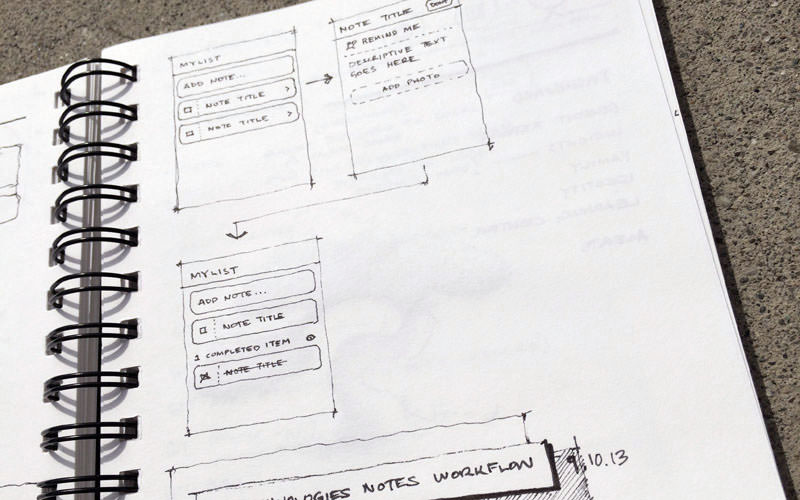 MY LIST
ADD NOTE...
NOTE TITLE >
NOTE TITLE >
NOTE TITLE DONE
REMIND ME
DESCRIPTIVE TEXT
GOES HERE
ADD PHOTO
MY LIST
ADD NOTE...
NOTE TITLE
1 COMPLETED ITEM
NOTE TITLE
NOTES WORKFLOW
9.10.13